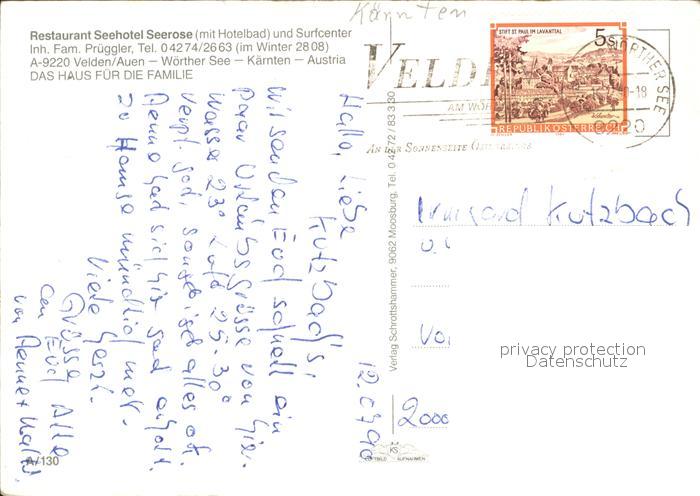 Kärnten
Restaurant Seehotel Seerose (mit Hotelbad) und Surfcenter
Inh. Fam. Prüggler, Tel. 04274/2663 (im Winter 2808)
A-9220 Velden/Auen — Wörther See — Kärnten — Austria
DAS HAUS FÜR DIE FAMILIE
STIFT ST. PAUL IM LAVANTTAL
5s
REPUBLIK ÖSTERREICH
VELD
AM WÖR
AN DER SONNENSEITE
WÖRTHER SEE
-18
12.
Hallo, Liebe
Kutzbach's,
Wir senden Euch schnell ein
paar Urlaubsgrüsse von hier.
Wasser 23° Luft 25-30°
Verpf. gut, sonst ist alles ok.
hat sich hier gut erholt.
Zu Hause mündlich mehr.
Viele herzl.
Grüsse Alle
an Euch
von
Verlag Schrottshammer, 9062 Moosburg, Tel. 04272/83330
Irmgard Kutzbach
2000
privacy protection
Datenschutz
A/130
KS
AUFNAHMEN